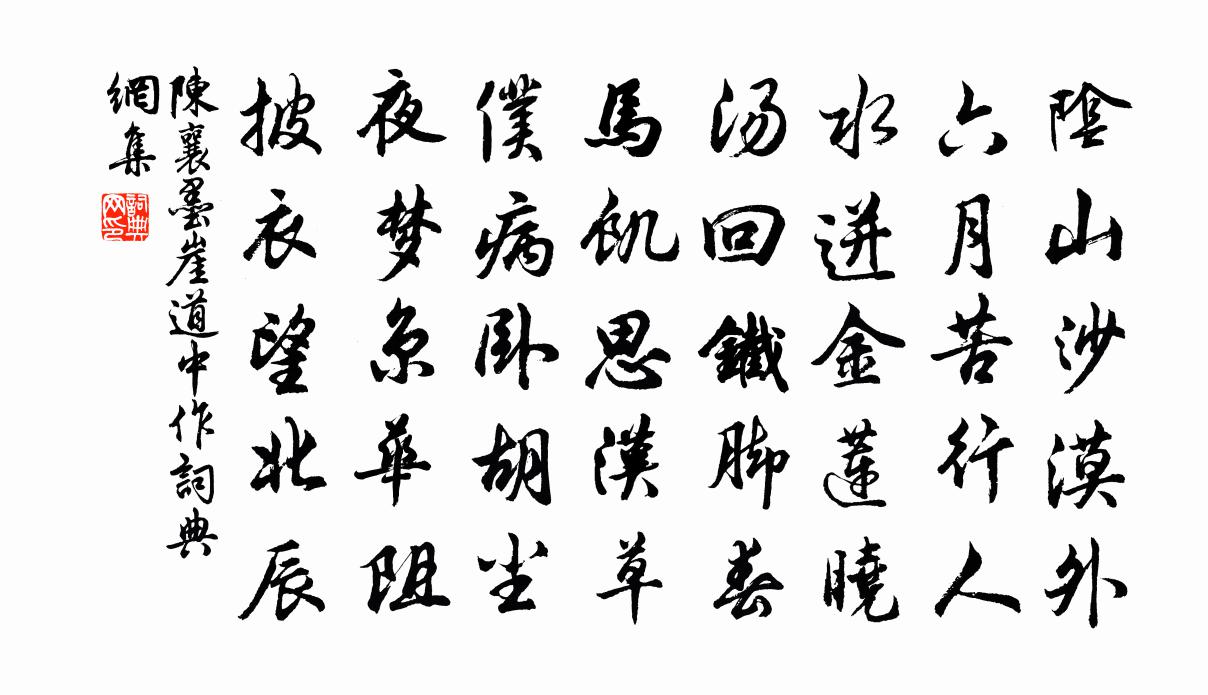 陰山沙漠外
六月苦行人
水迸金蓮曉
湯回鐵脚春
馬飢思漢草
僕病卧胡尘
夜梦京華阻
披衣望北辰
陳襄墨崖道中作詞典
網集
詞典
网印